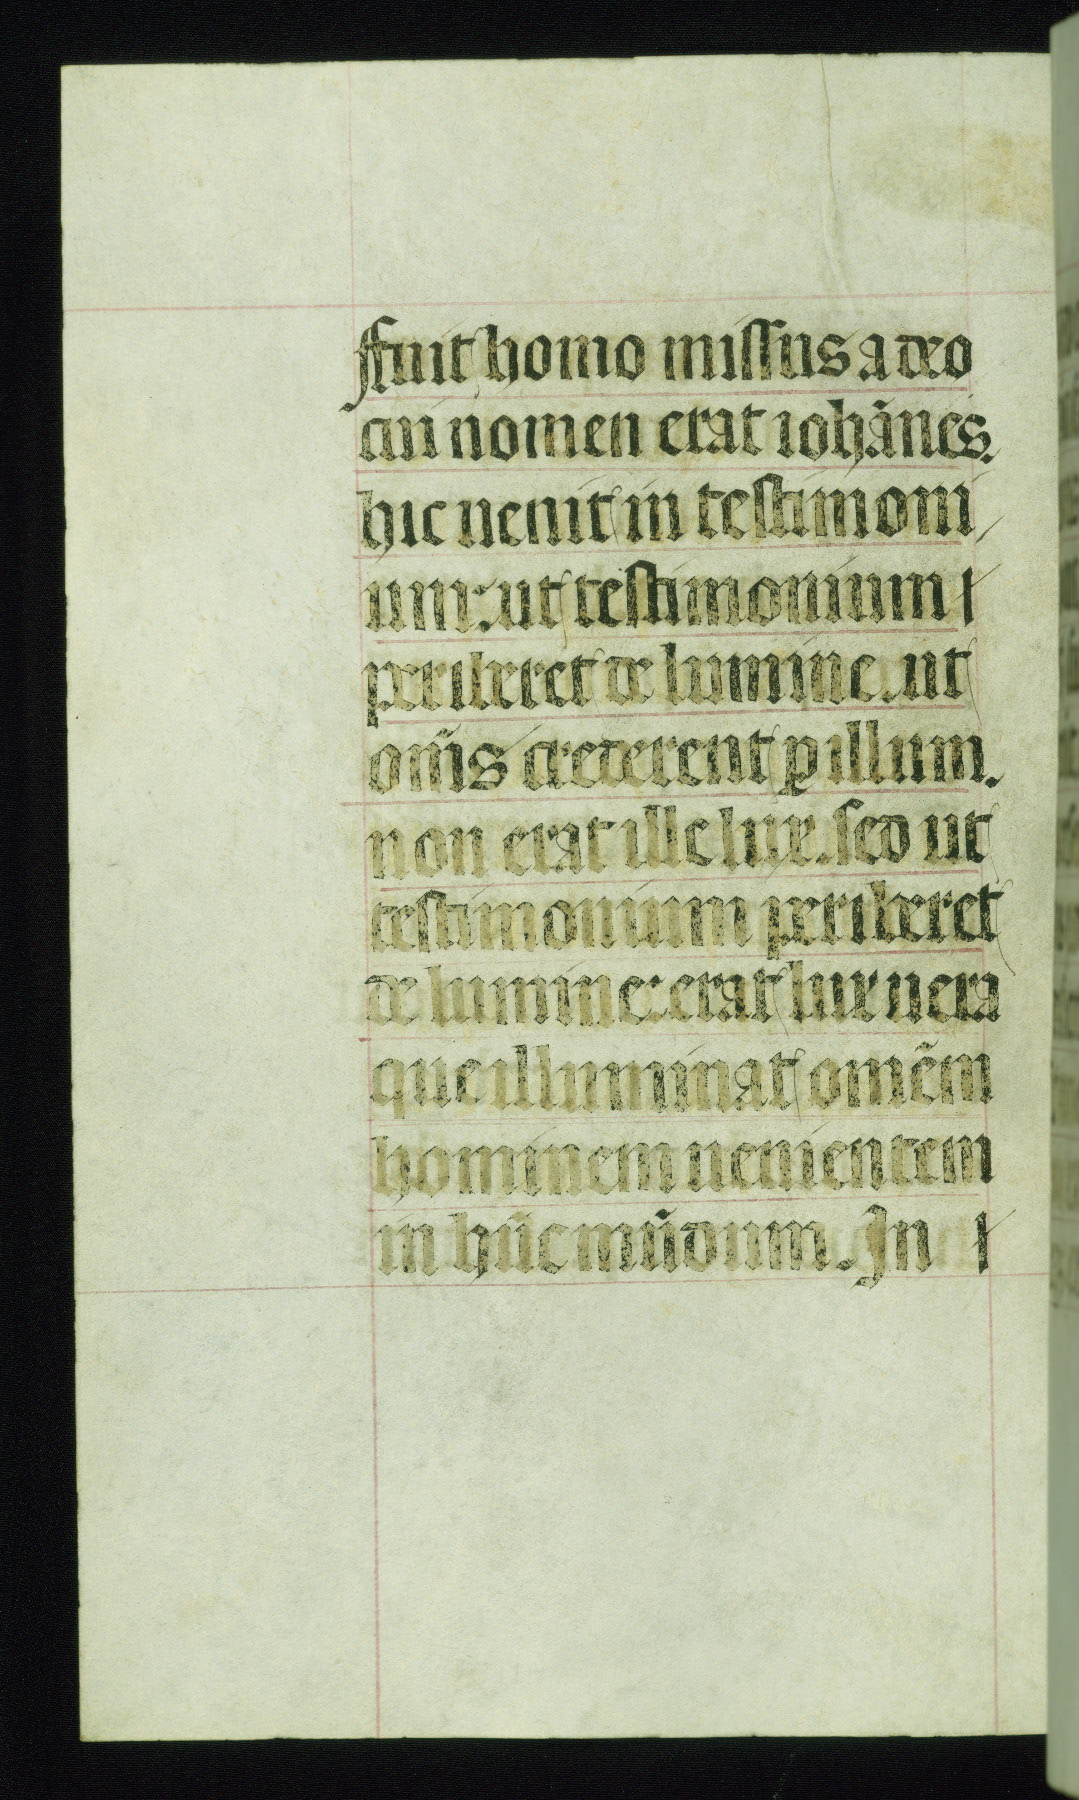 ffuit homo missus a deo
cui nomen erat iohānes.
hic uenit in testimoni
um: ut testimonium
perhiberet de lumine. ut
om̄s crederent ꝑ illum.
non erat ille lux. sed ut
testimonium perhiberet
de lumine: erat lux uera
que illuminat omēm
hominem uenientem
in hūc mūdum. In